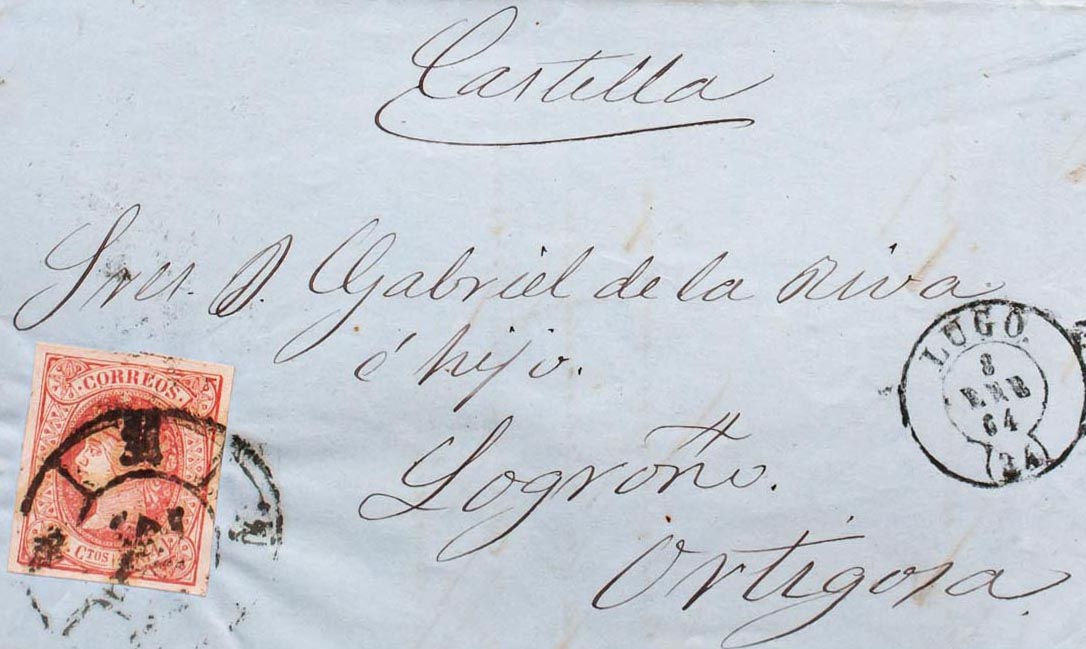 Castella
Sres. D. Gabriel de la Riva
é hijo.
Logroño.
Ortigosa
LUGO.
8
ENE
64
CORREOS.
CTOS